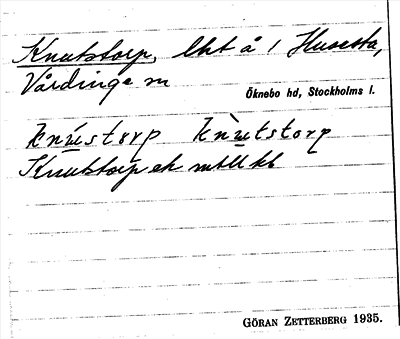 Knutstorp, lht å 1 Husesta,
Vårdinge sn
Öknebo hd, Stockholms l.
knu̇stȯrp knu̇tstȯrp
Knutstorp ek
GÖRAN ZETTERBERG 1935.